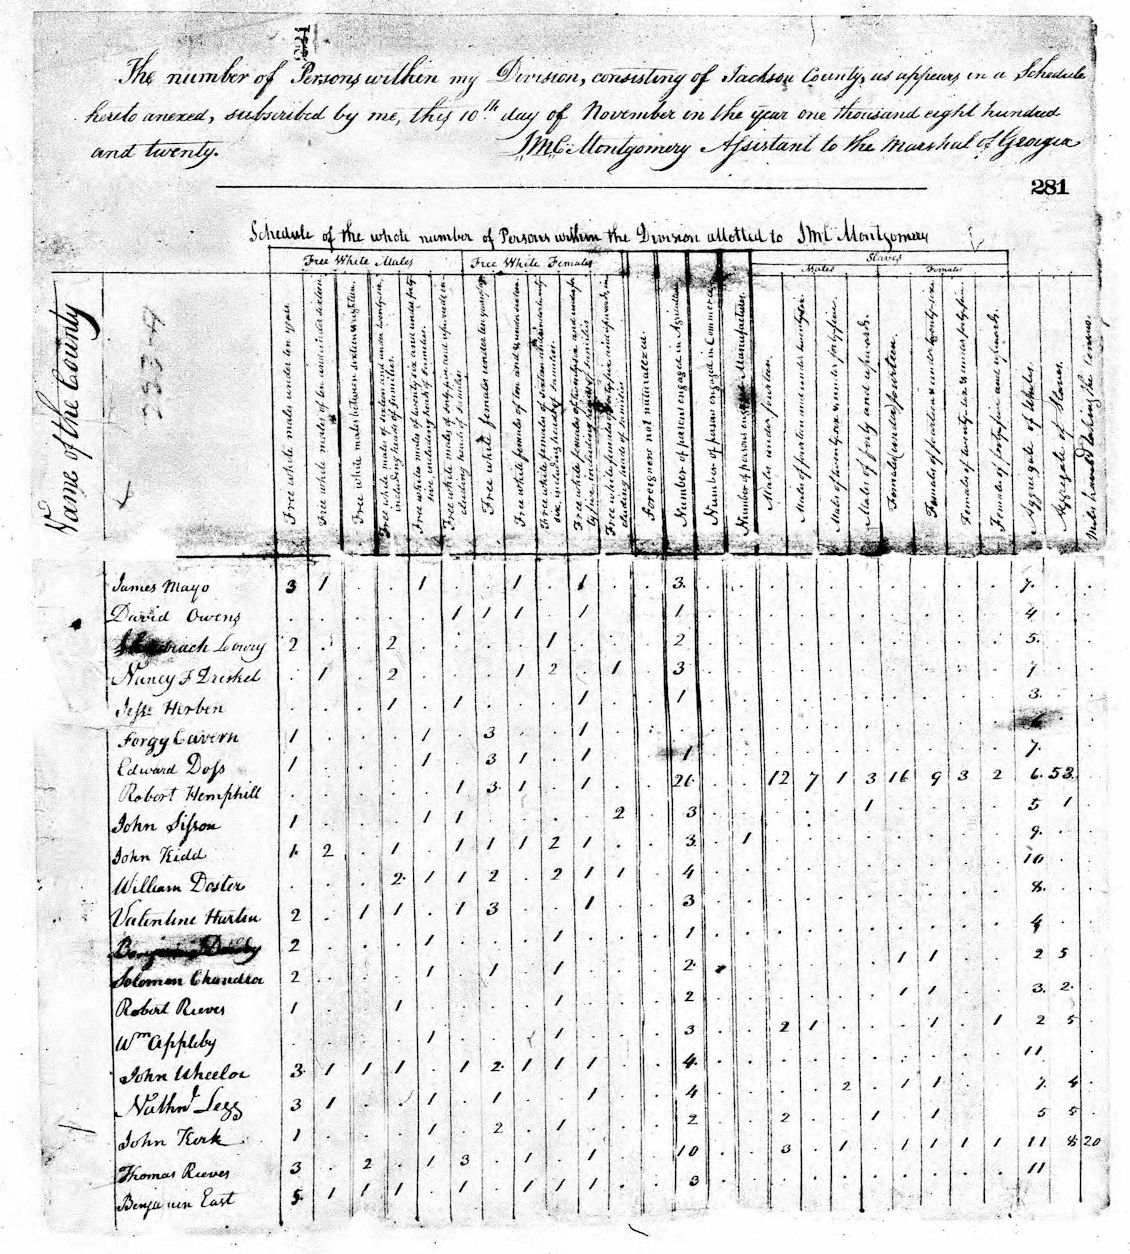 The number of Persons within my Division, consisting of Jackson County, as appears in a Schedule
hereto anexed, subscribed by me, this 10th day of November in the year one thousand eight hundred
and twenty. JMC Montgomery Assistant to the Marshal of Georgia
281
Schedule of the whole number of Persons within the Division allotted to JMC Montgomery
Free White Males Free White Females Slaves
Males Females
Name of the County
Free white males under ten years
Free white males of ten and under sixteen
Free white males between sixteen & eighteen
Free white males of sixteen and under twenty six, including heads of families
Free white males of twenty six and under forty five, including heads of families
Free white males of forty five and upwards including heads of families
Free white females under ten years
Free white females of ten and under sixteen
Free white females of sixteen and under twenty six, including heads of families
Free white females of twenty six and under forty five, including heads of families
Free white females of forty five and upwards including heads of families
Foreigners not naturalized
Number of persons engaged in Agriculture
Number of persons engaged in Commerce
Number of persons engaged in Manufactures
Males under fourteen
Males of fourteen and under twenty six
Males of twenty six & under forty five
Males of forty and upwards
Females under fourteen
Females of fourteen & under twenty six
Females of twenty six & under forty five
Females of forty five and upwards
Aggregate of Whites
Aggregate of Slaves
James Mayo 3 1 . . 1 . . 1 . 1 . . 3 . . . . . . . . . . 7
David Owens . . . . . 1 1 1 . 1 . . 1 . . . . . . . . . . 4
Lowry 2 . . 2 . . . . 1 . . . 2 . . . . . . . . . . 5
Nancy F Driskel . 1 . 2 . . . 1 2 . 1 . 3 . . . . . . . . . . 7
Jesse Herben . . . 1 . 1 . . . 1 . . 1 . . . . . . . . . . 3
Forgy Cavern 1 . . . 1 . 3 . . 1 . . . . . . . . . . . . . 6
Edward Doss 1 . . . 1 . 3 1 . 1 . . 1 . . . . . . . . . . 7
Robert Hemphill . . . . . 1 3 1 . 1 . . 26 . . 12 7 1 3 16 9 3 2 6 53
John Sisson 1 . . . 1 1 . . . . 2 . 3 . . . . . 1 . . . . 5 1
John Kidd 1 2 . 1 . 1 1 1 2 1 . . 3 . 1 . . . . . . . . 9
William Doster . . . 2 1 1 2 . 2 1 1 . 4 . . . . . . . . . . 10
Valentine Hurlin 2 . 1 1 . 1 3 . . 1 . . 3 . . . . . . . . . . 8
2 . . . 1 . . . 1 . . . 1 . . . . . . . . . . 4
Solomon Chandler 2 . . . 1 . 1 . 1 . . . 2 . . . . . . 1 1 . . 2 5
Robert Reeves 1 . . 1 . . . . 1 . . . 2 . . . . . . 1 1 . . 3 2
Wm Appleby . . . . 1 . . . 1 . . . 3 . . 2 1 . . . 1 . 1 2 5
John Wheelor 3 1 1 1 . 1 2 1 1 1 . . 4 . . . . . . . . . . 11
Nathnl Legg 3 1 . . 1 . 1 . . 1 . . 4 . . . . 2 . 1 1 . . 7 4
John Kerk 1 . . . 1 . 2 . 1 . . . 2 . . 2 . . 1 . 1 . . 5 5
Thomas Reeves 3 . 2 . 1 3 . 1 . 1 . . 10 . . 3 . 1 . 1 1 1 1 11 8 20
Benjamin East 5 1 1 1 . 1 . 1 1 1 . . 3 . . . . . . . . . . 11